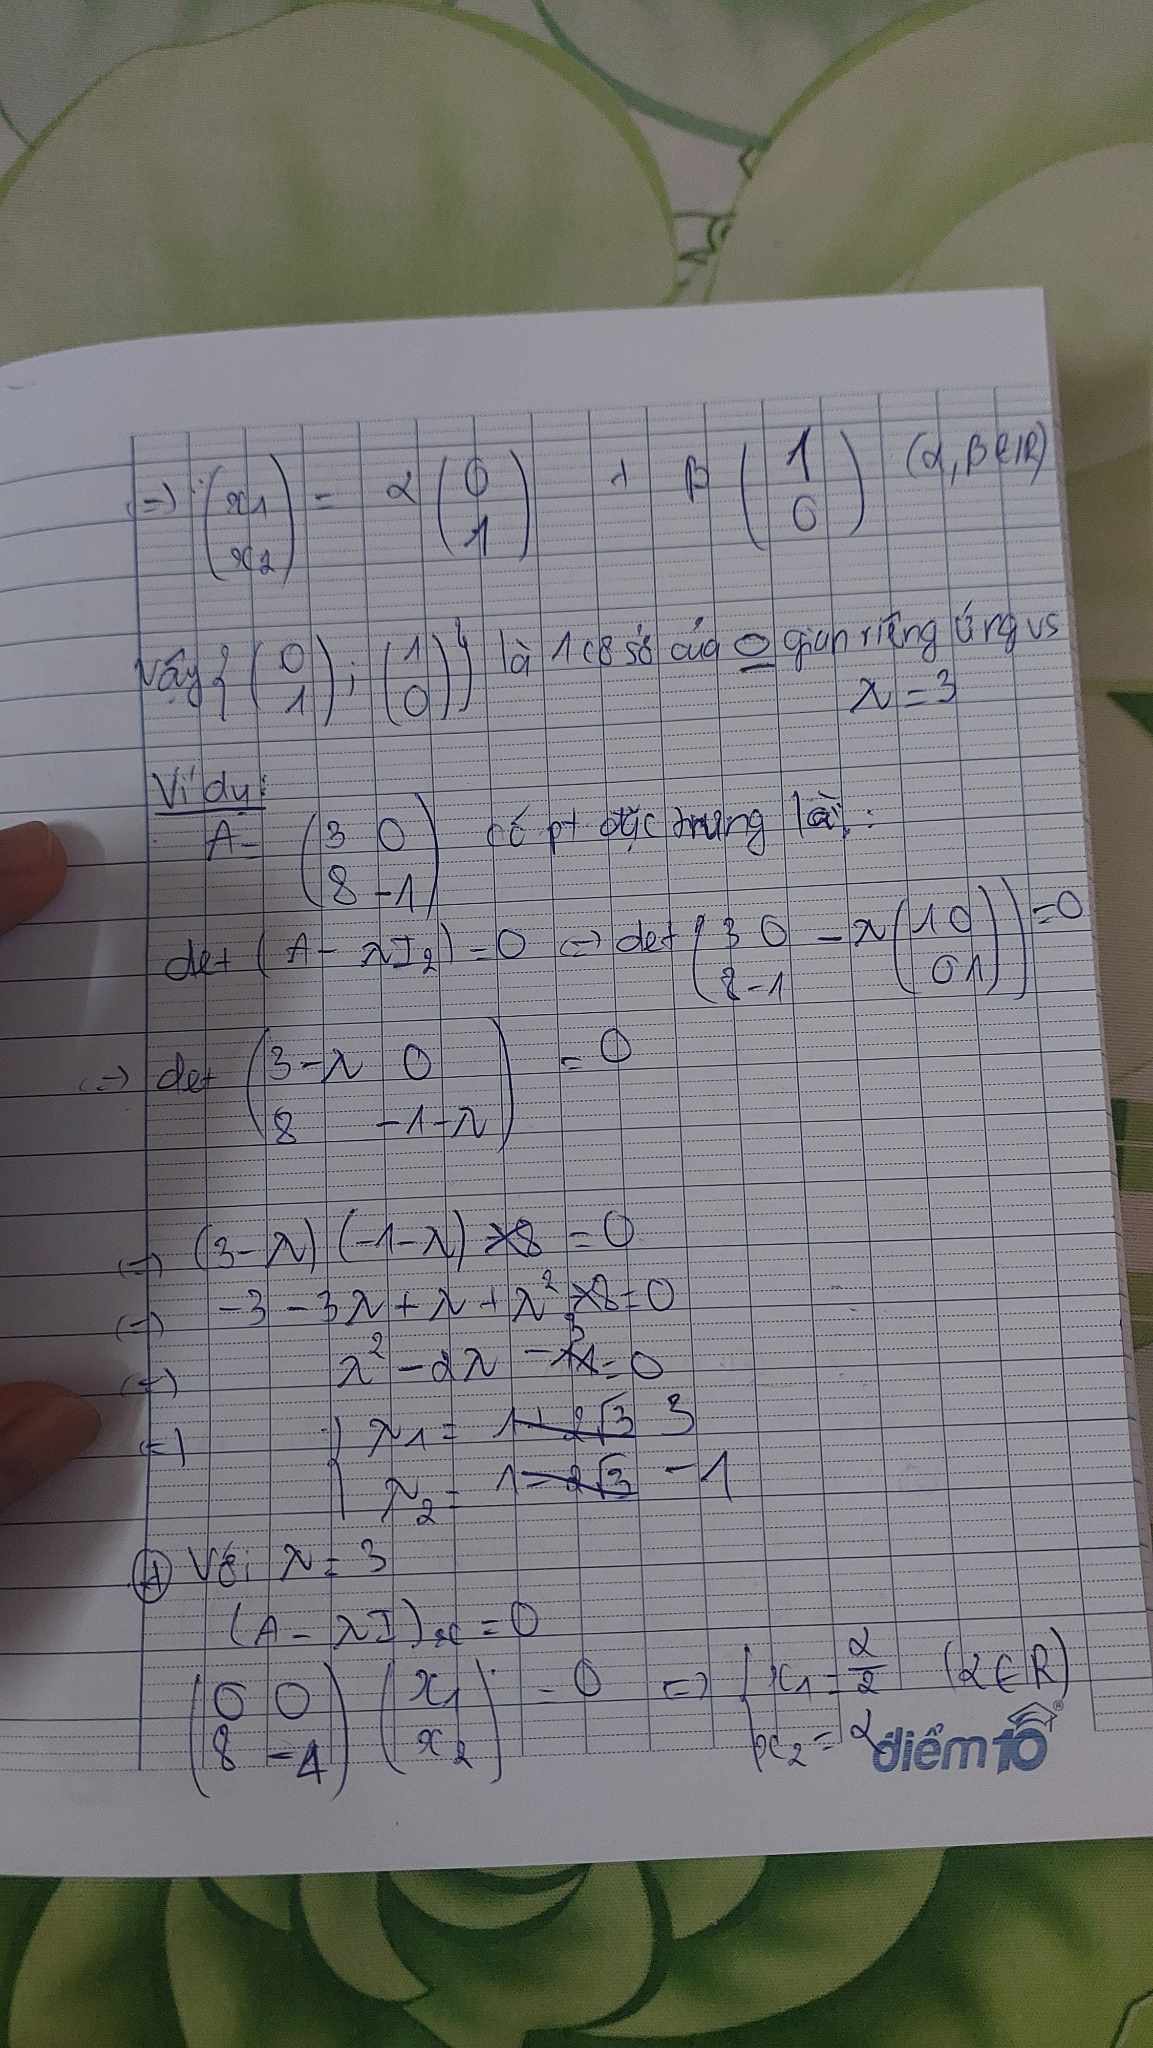 => (x1 x2) = α (0 1) + β (1 0) (α, β ∈ IR)
Vậy { (0 1) ; (1 0) } là 1 cơ sở của 0 gian riêng ứng vs
λ = 3
Ví dụ:
A = (3 0 8 -1) có pt đặc trưng là:
det (A - λI2) = 0 <=> det (3 0 8 -1 - λ (1 0 0 1)) = 0
<=> det (3-λ 0 8 -1-λ) = 0
<=> (3-λ) (-1-λ) = 0
<=> -3 - 3λ + λ + λ² = 0
<=> λ² - 2λ - 3 = 0
<=> { λ1 = 3
λ2 = -1
+ Với λ = 3
(A - λI)x = 0
(0 0 8 -4) (x1 x2) = 0 => { x1 = α/2 (α ∈ R)
x2 = α
điểm10